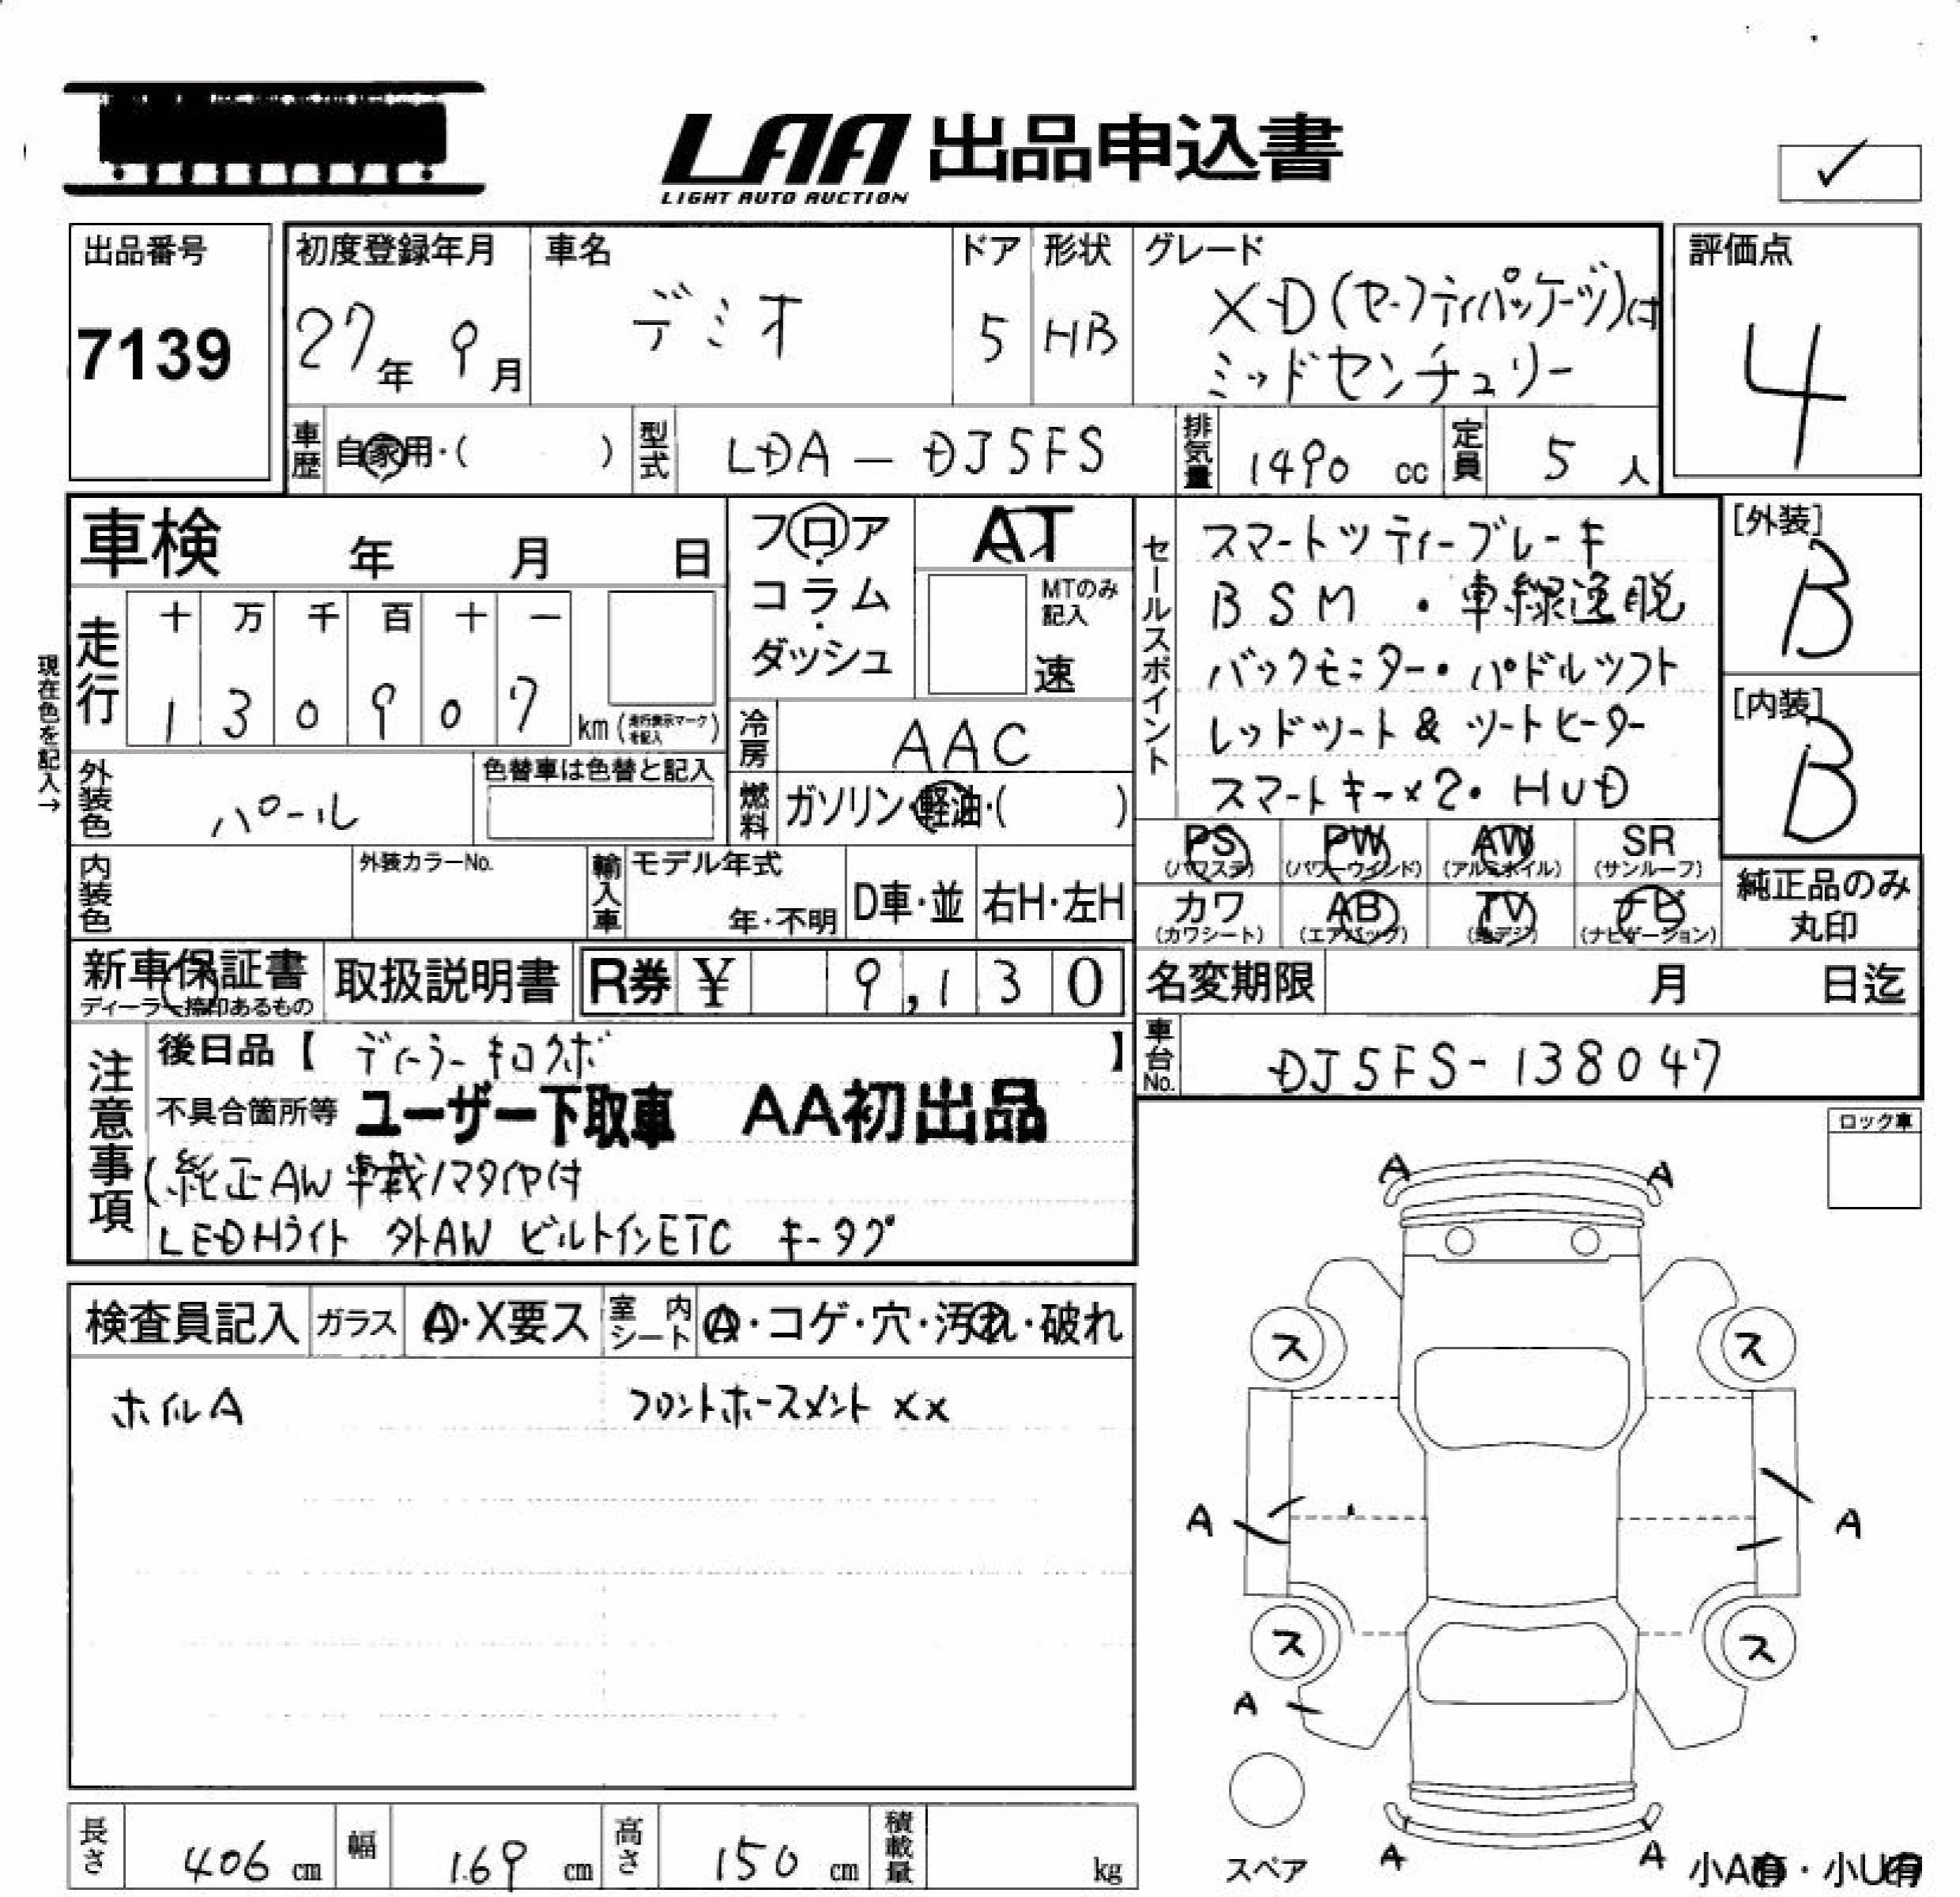 LAA 出品申込書
LIGHT AUTO AUCTION
✓
出品番号
7139
初度登録年月
27年 9月
車名
デミオ
ドア
5
形状
HB
グレード
XD(セーフティパッケージ)は
ミッドセンチュリー
評価点
4
車歴 自家用・( )
型式 LDA-DJ5FS
排気量 1490 cc
定員 5 人
車検 年 月 日
フロア・コラム・ダッシュ
AT
MTのみ記入
速
現在色を記入→
走行
十 万 千 百 十 一
1 3 0 9 0 7
km(走行表示マークを記入)
冷房 AAC
燃料 ガソリン・軽油・( )
外装色 パール
色替車は色替と記入
内装色
外装カラーNo.
輸入車
モデル年式
年・不明
D車・並
右H・左H
新車保証書
ディーラー捺印あるもの
取扱説明書
R券 ¥ 9,130
セールスポイント
スマートシティーブレーキ
BSM ・車線逸脱
バックモニター・パドルシフト
レッドシート & シートヒーター
スマートキー×2・HUD
[外装]
B
[内装]
B
PS PW AW SR
(パワステ) (パワーウインド) (アルミホイル) (サンルーフ)
カワ AB TV ナビ
(カワシート) (エアバック) (地デジ) (ナビゲーション)
純正品のみ
丸印
名変期限 月 日迄
車台No. DJ5FS-138047
注意事項
後日品【 ディーラーキロクボ 】
不具合箇所等 ユーザー下取車 AA初出品
(純正AW 車載ノマタイヤ付
LEDHライト 外AW ビルトインETC キータグ
ロック車
検査員記入
ガラス A・X要ス
室内シート A・コゲ・穴・汚れ・破れ
ホイルA フロントホースメント XX
A A
ス ス
A A
ス ス
A
A A
スペア
小A有・小U有
長さ 406 cm
幅 169 cm
高さ 150 cm
積載量 kg